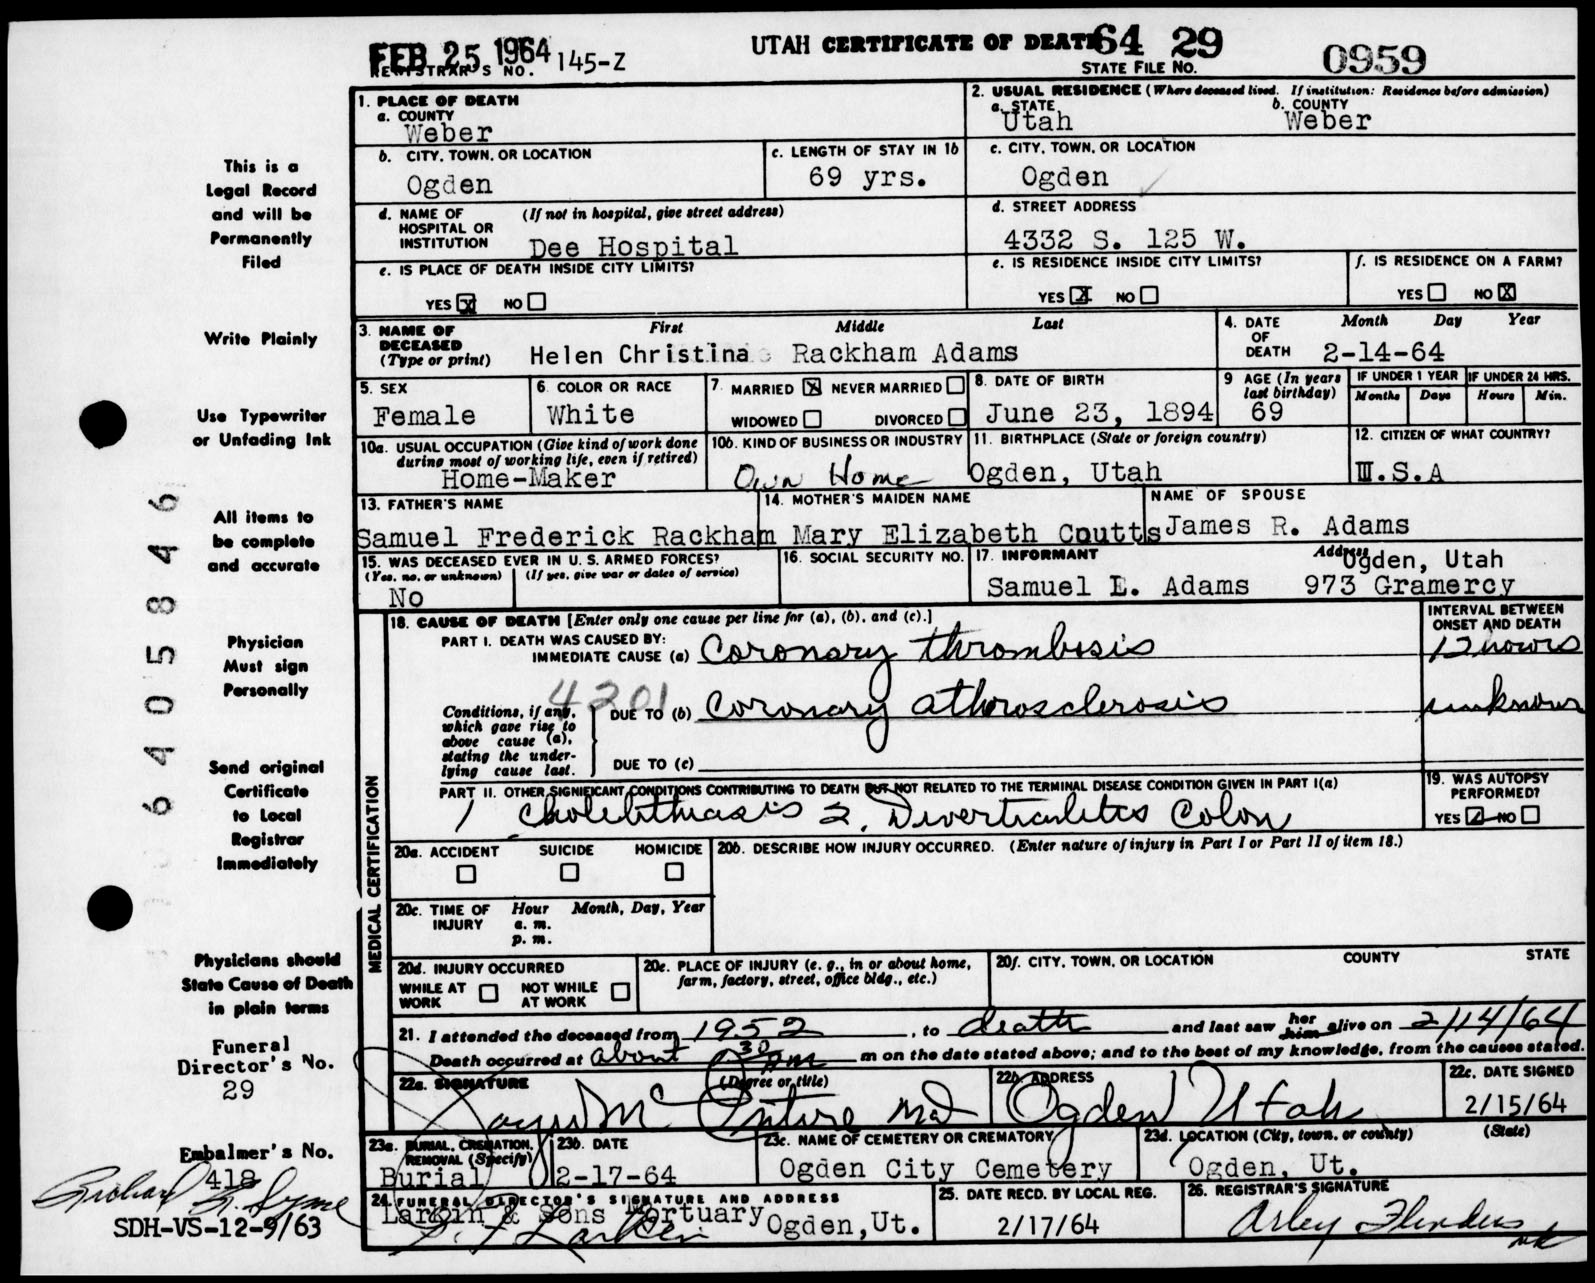 FEB 25 1964
REGISTRAR'S NO. 145-Z
UTAH CERTIFICATE OF DEATH 64 29
STATE FILE NO. 0959
1. PLACE OF DEATH
a. COUNTY
Weber
2. USUAL RESIDENCE (Where deceased lived. If institution: Residence before admission)
a. STATE b. COUNTY
Utah Weber
b. CITY, TOWN, OR LOCATION
Ogden
c. LENGTH OF STAY IN 1b
69 yrs.
c. CITY, TOWN, OR LOCATION
Ogden
d. NAME OF HOSPITAL OR INSTITUTION (If not in hospital, give street address)
Dee Hospital
d. STREET ADDRESS
4332 S. 125 W.
e. IS PLACE OF DEATH INSIDE CITY LIMITS?
YES X NO
e. IS RESIDENCE INSIDE CITY LIMITS?
YES X NO
f. IS RESIDENCE ON A FARM?
YES NO X
3. NAME OF DECEASED (Type or print) First Middle Last
Helen Christina Rackham Adams
4. DATE OF DEATH Month Day Year
2-14-64
5. SEX
Female
6. COLOR OR RACE
White
7. MARRIED X NEVER MARRIED
WIDOWED DIVORCED
8. DATE OF BIRTH
June 23, 1894
9 AGE (In years last birthday)
69
IF UNDER 1 YEAR
Months Days
IF UNDER 24 HRS.
Hours Min.
10a. USUAL OCCUPATION (Give kind of work done during most of working life, even if retired)
Home-Maker
10b. KIND OF BUSINESS OR INDUSTRY
Own Home
11. BIRTHPLACE (State or foreign country)
Ogden, Utah
12. CITIZEN OF WHAT COUNTRY?
U.S.A
13. FATHER'S NAME
Samuel Frederick Rackham
14. MOTHER'S MAIDEN NAME
Mary Elizabeth Coutts
NAME OF SPOUSE
James R. Adams
15. WAS DECEASED EVER IN U. S. ARMED FORCES?
(Yes, no, or unknown) (If yes, give war or dates of service)
No
16. SOCIAL SECURITY NO.
17. INFORMANT Address
Samuel E. Adams
Ogden, Utah
973 Gramercy
MEDICAL CERTIFICATION
18. CAUSE OF DEATH [Enter only one cause per line for (a), (b), and (c).]
INTERVAL BETWEEN ONSET AND DEATH
PART I. DEATH WAS CAUSED BY:
IMMEDIATE CAUSE (a) Coronary thrombosis 12 hours
4201
Conditions, if any, which gave rise to above cause (a), stating the underlying cause last.
DUE TO (b) Coronary atherosclerosis unknown
DUE TO (c)
PART II. OTHER SIGNIFICANT CONDITIONS CONTRIBUTING TO DEATH BUT NOT RELATED TO THE TERMINAL DISEASE CONDITION GIVEN IN PART I(a)
1 Cholelithiasis 2. Diverticulitis Colon
19. WAS AUTOPSY PERFORMED?
YES NO
20a. ACCIDENT SUICIDE HOMICIDE
20b. DESCRIBE HOW INJURY OCCURRED. (Enter nature of injury in Part I or Part II of item 18.)
20c. TIME OF INJURY Hour Month, Day, Year
a. m.
p. m.
20d. INJURY OCCURRED
WHILE AT WORK NOT WHILE AT WORK
20e. PLACE OF INJURY (e. g., in or about home, farm, factory, street, office bldg., etc.)
20f. CITY, TOWN, OR LOCATION COUNTY STATE
21. I attended the deceased from 1952, to death and last saw her him alive on 2/14/64
Death occurred at about 30 pm m on the date stated above; and to the best of my knowledge, from the causes stated.
22a. SIGNATURE (Degree or title)
McIntire Md
22b. ADDRESS
Ogden Utah
22c. DATE SIGNED
2/15/64
23a. BURIAL, CREMATION, REMOVAL (Specify)
Burial
23b. DATE
2-17-64
23c. NAME OF CEMETERY OR CREMATORY
Ogden City Cemetery
23d. LOCATION (City, town, or county) (State)
Ogden, Ut.
24. FUNERAL DIRECTOR'S SIGNATURE AND ADDRESS
Larkin & Sons Mortuary Ogden, Ut.
Larkin
25. DATE RECD. BY LOCAL REG.
2/17/64
26. REGISTRAR'S SIGNATURE
Arley Flinders
This is a
Legal Record
and will be
Permanently
Filed
Write Plainly
Use Typewriter
or Unfading Ink
All items to
be complete
and accurate
Physician
Must sign
Personally
Send original
Certificate
to Local
Registrar
Immediately
64058 46
Physicians should
State Cause of Death
in plain terms
Funeral
Director's No.
29
Embalmer's No.
418
Richard
SDH-VS-12-9/63